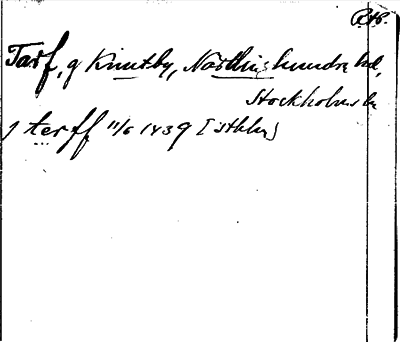 RAÖ.
Tarf, g Knutby, Närdinghundra hd,
Stockholms ln
j terff 11/6 1439 [Sthlm]